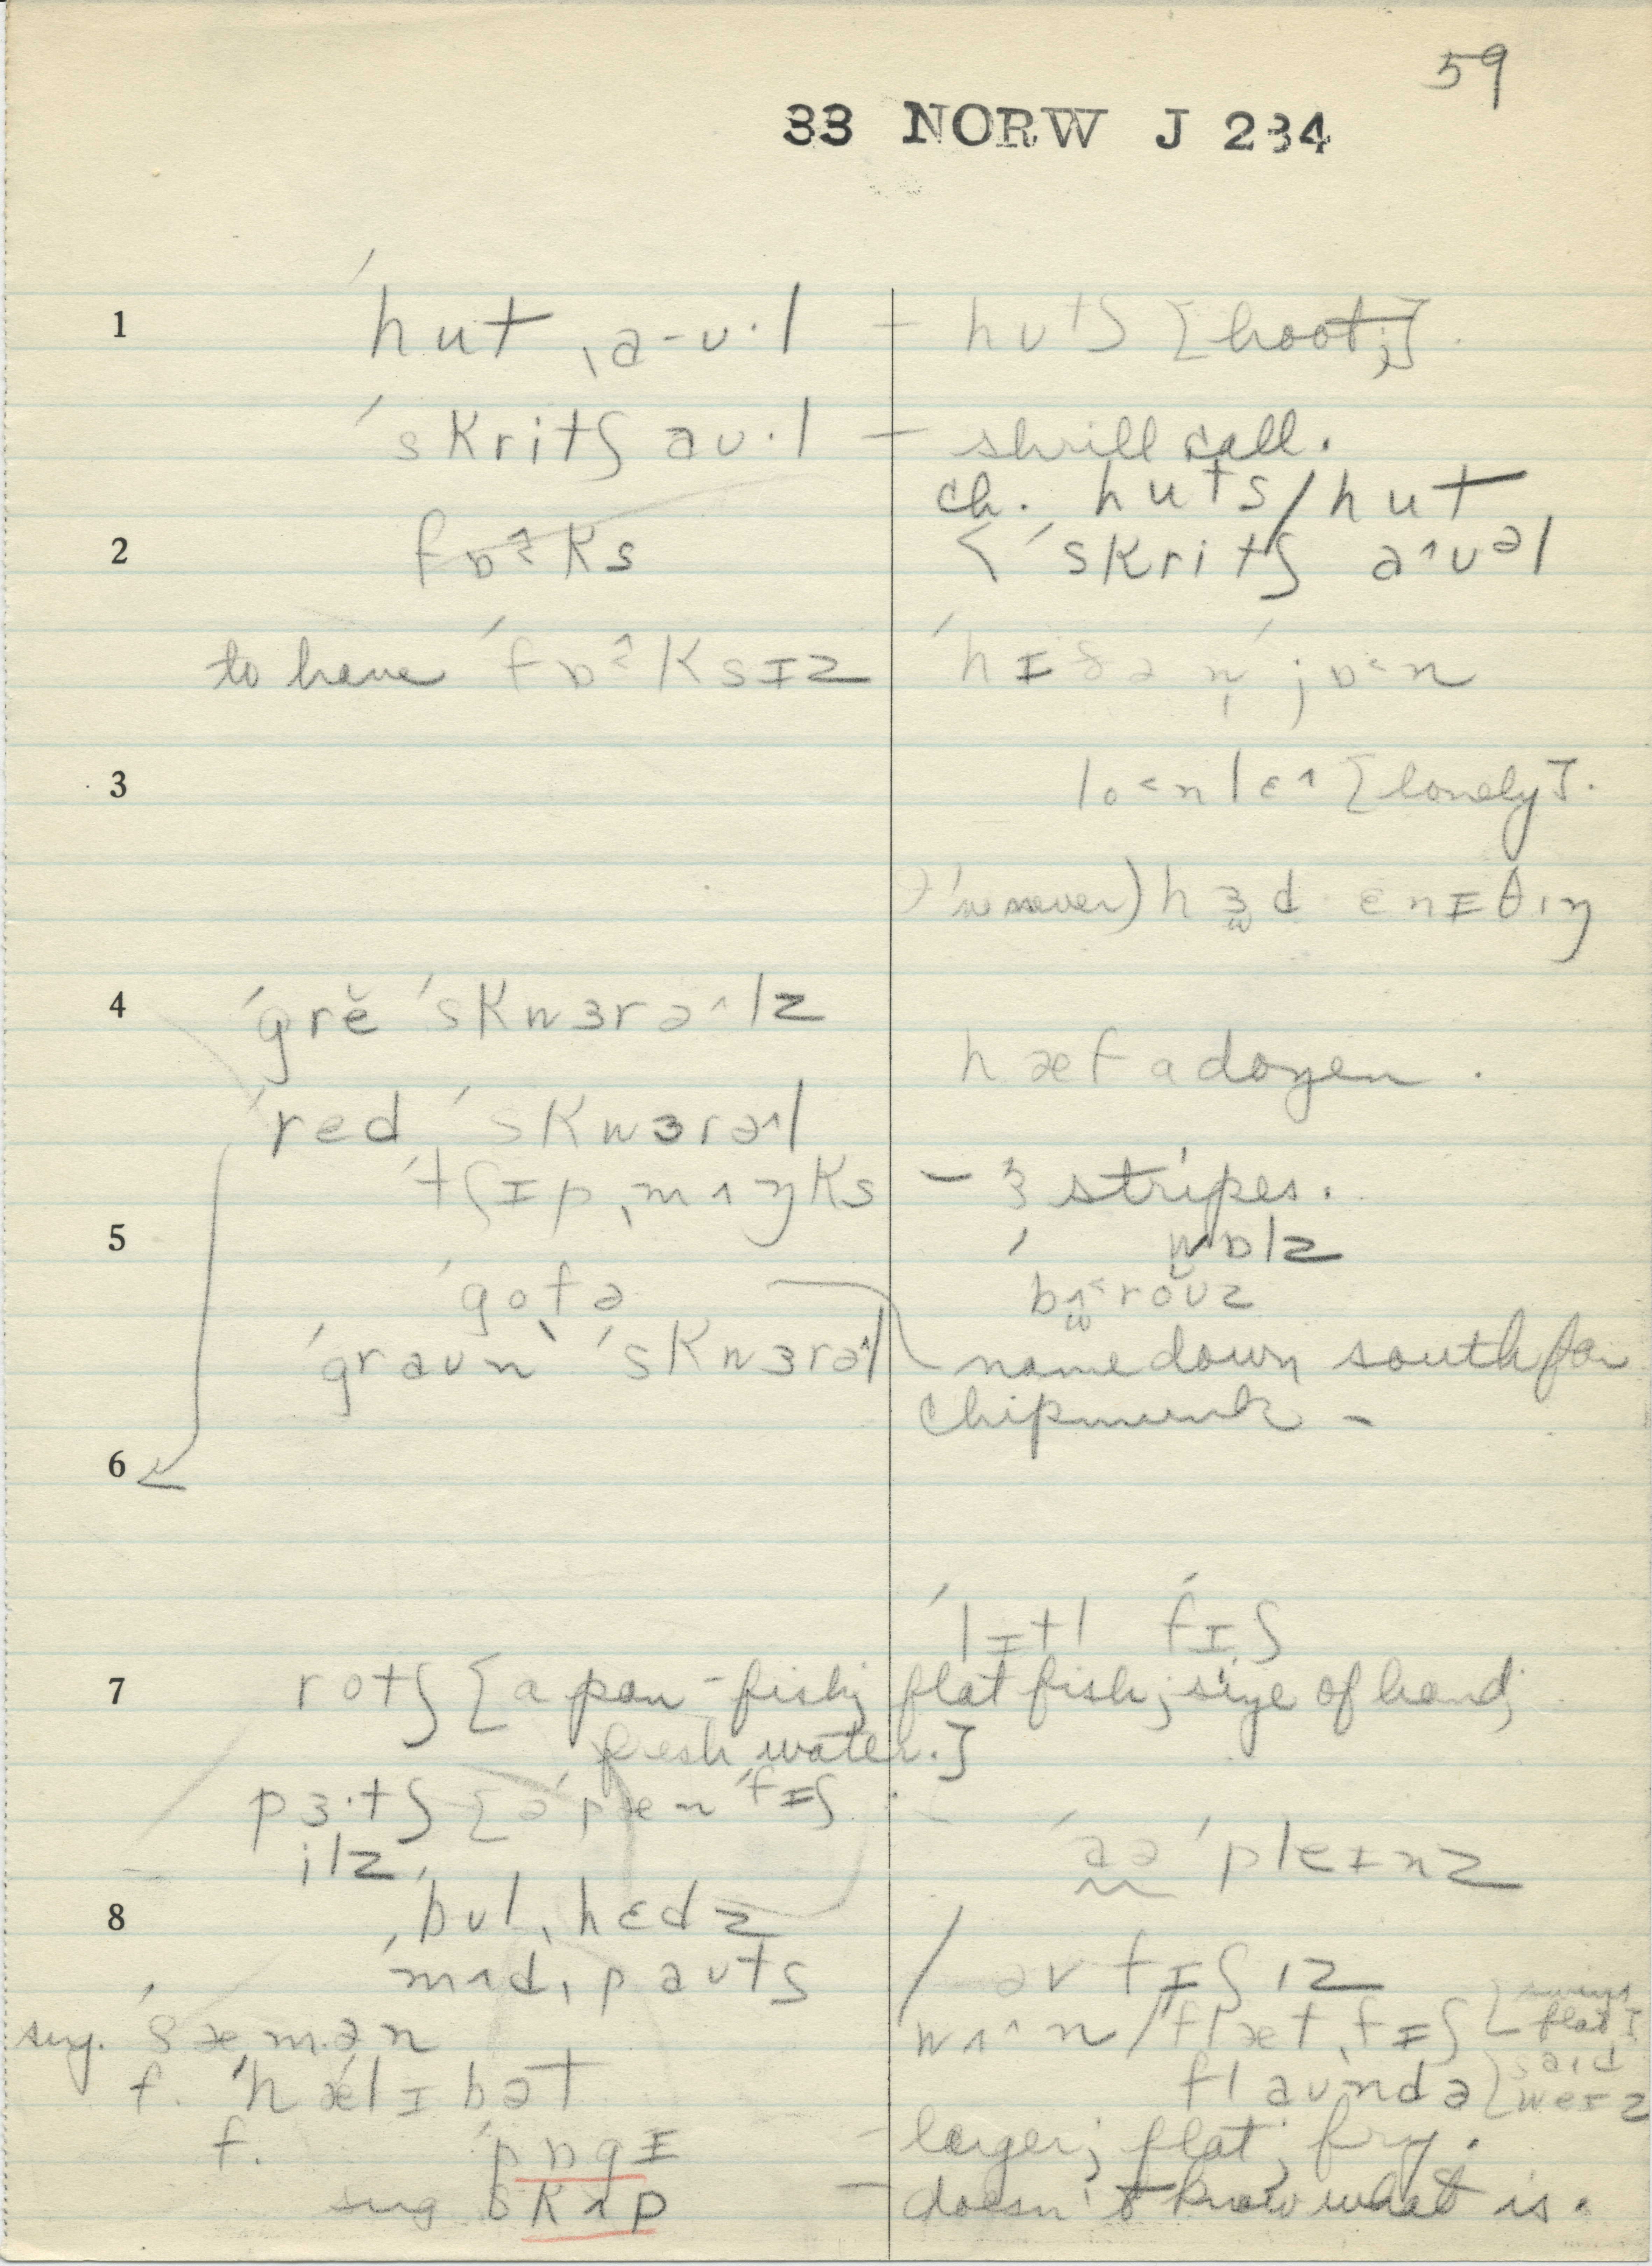 59
33 NORW J 234
1 ˈhut ˌa-ʊ·l – hʊtʃ [hoot;].
ˈskritʃ aʊ·l – shrill call.
ch. huts/hut
2 fɒˀks < ˈskritʃ aˆʊəl
to have ˈfɒˀksɪz ˈhɪðən̩ ; jɒ˂n
3 lo˂nlɛˆ [lonely].
('ve never) hɜd ɛnɪθɪŋ
4 ˈgrĕ ˈskwɜrəˆlz
hæf a dozen.
ˈred ˈskwɜrəˆl
ˈtʃɪpˌmʌŋks – 3 stripes.
5 ˈ wɒlz
ˈgofə bʌ˂rŏʊz
ˈgraʊnˈ ˈskwɜrəˆl name down south for
chipmunk –
6
ˈlɪtl ˈfɪʃ
7 rotʃ [a pan-fish; flat fish; size of hand;
fresh water.]
pɜ·tʃ [əˈpænˈfɪʃ
ilz ˈaə ˈpleɪnz
8 ˈbʊlˌhɛdz
ˈmʌdˌpaʊts / əv fɪʃɪz
sug. ˈsæmən wʌˆn/ˈflætˌfɪʃ [swims flat]
f. ˈhælɪbət flaʊndə [said weɪz
f. ˈpɒgɪ – larger; flat; fry.
sug skʌp – doesn't know what is.